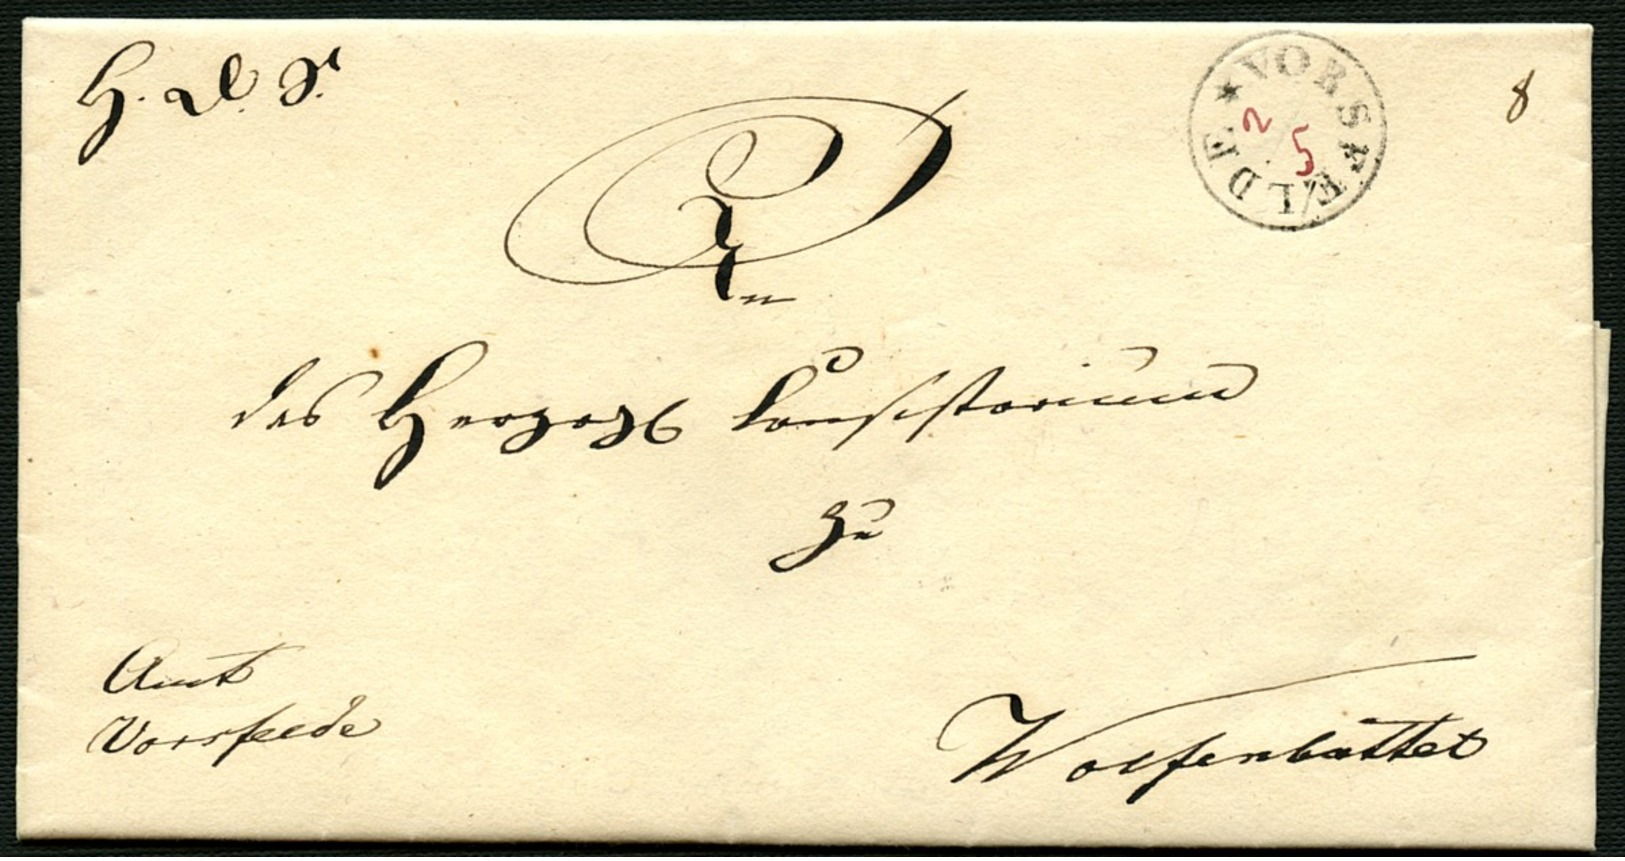 H. D. S.
VORSFELDE
2
5
8
An
das Herzogl Consistorium
zu
Amt
Vorsfelde
Wolfenbüttel